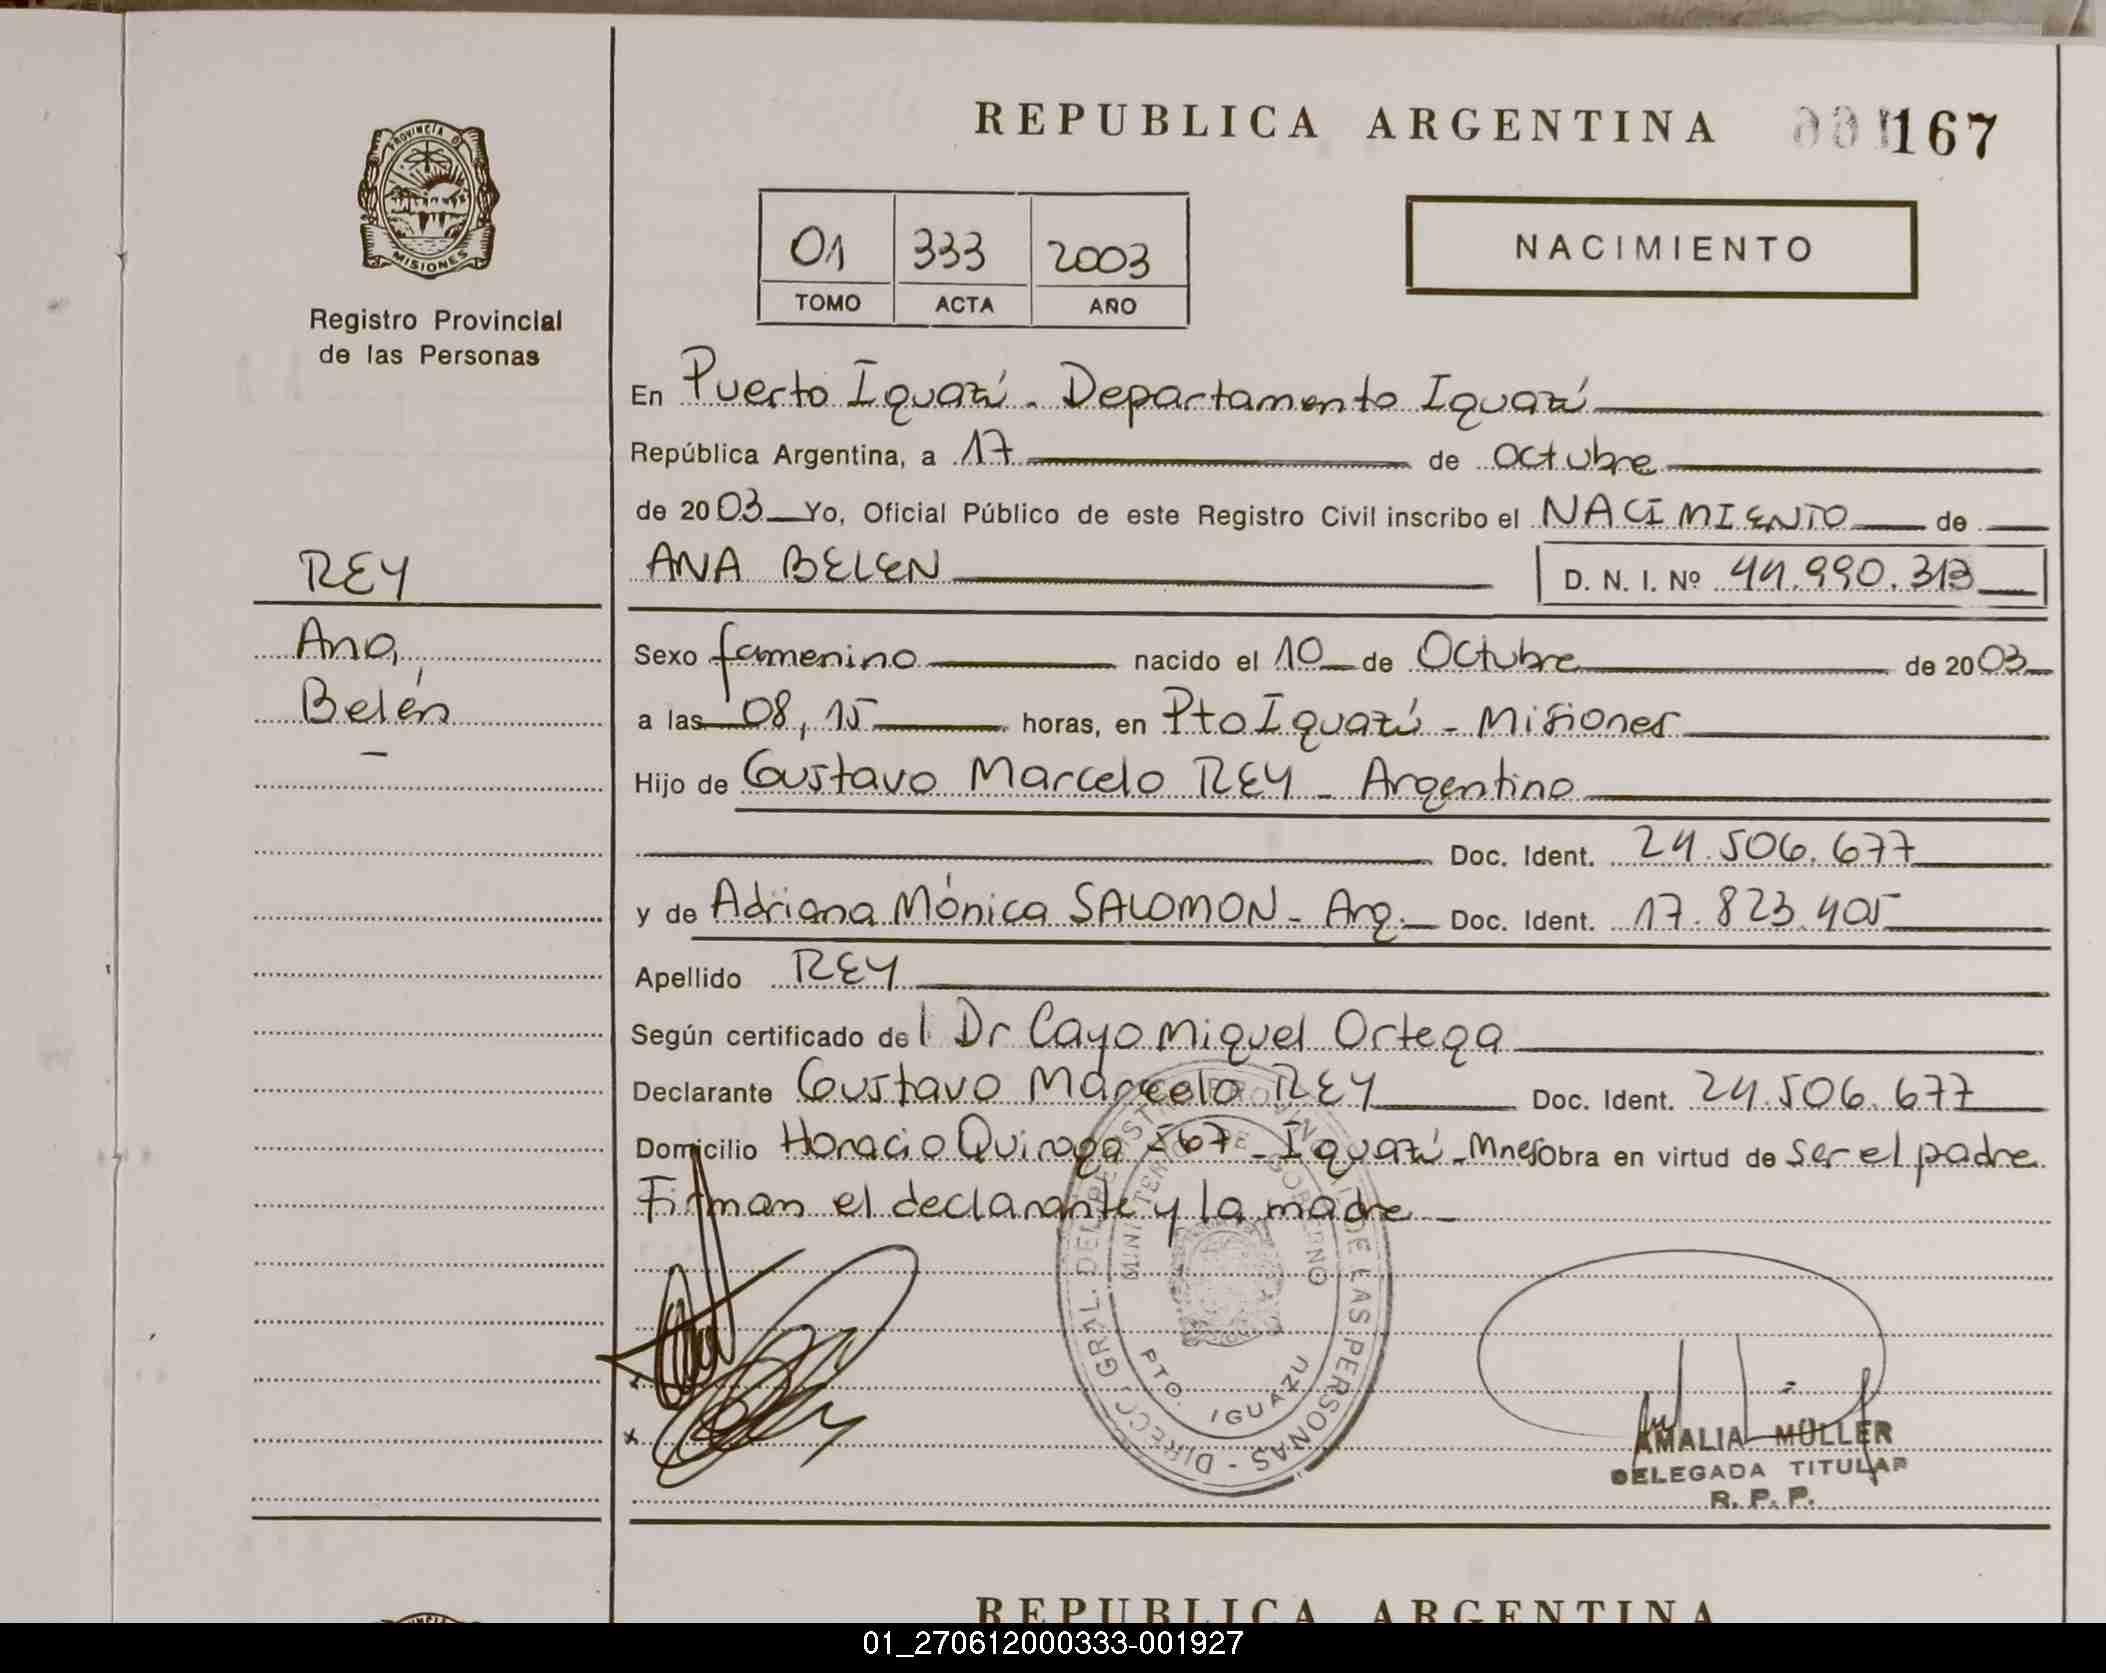 REPUBLICA ARGENTINA 167
PROVINCIA DE MISIONES
Registro Provincial
de las Personas
01 333 2003
TOMO ACTA AÑO
NACIMIENTO
En Puerto Iguazú - Departamento Iguazú
República Argentina, a 17 de Octubre
de 2003 Yo, Oficial Público de este Registro Civil inscribo el NACIMIENTO de
REY
ANA BELEN D. N. I. Nº 44.990.313
Ana
Belén
Sexo femenino nacido el 10 de Octubre de 2003
a las 08,15 horas, en Pto Iguazú - Misiones
Hijo de Gustavo Marcelo REY - Argentino
Doc. Ident. 24.506.677
y de Adriana Mónica SALOMON - Arg. Doc. Ident. 17.823.405
Apellido REY
Según certificado del Dr Cayo Miguel Ortega
Declarante Gustavo Marcelo REY Doc. Ident. 24.506.677
Domicilio Horacio Quiroga 567 - Iguazú - Mnes Obra en virtud de ser el padre
Firman el declarante y la madre
DIRECC. GRAL. DEL REGISTRO PROVINCIAL DE LAS PERSONAS -
MINISTERIO DE GOBIERNO
PTO. IGUAZU
AMALIA MÜLLER
DELEGADA TITULAR
R. P. P.
REPUBLICA ARGENTINA
01_270612000333-001927